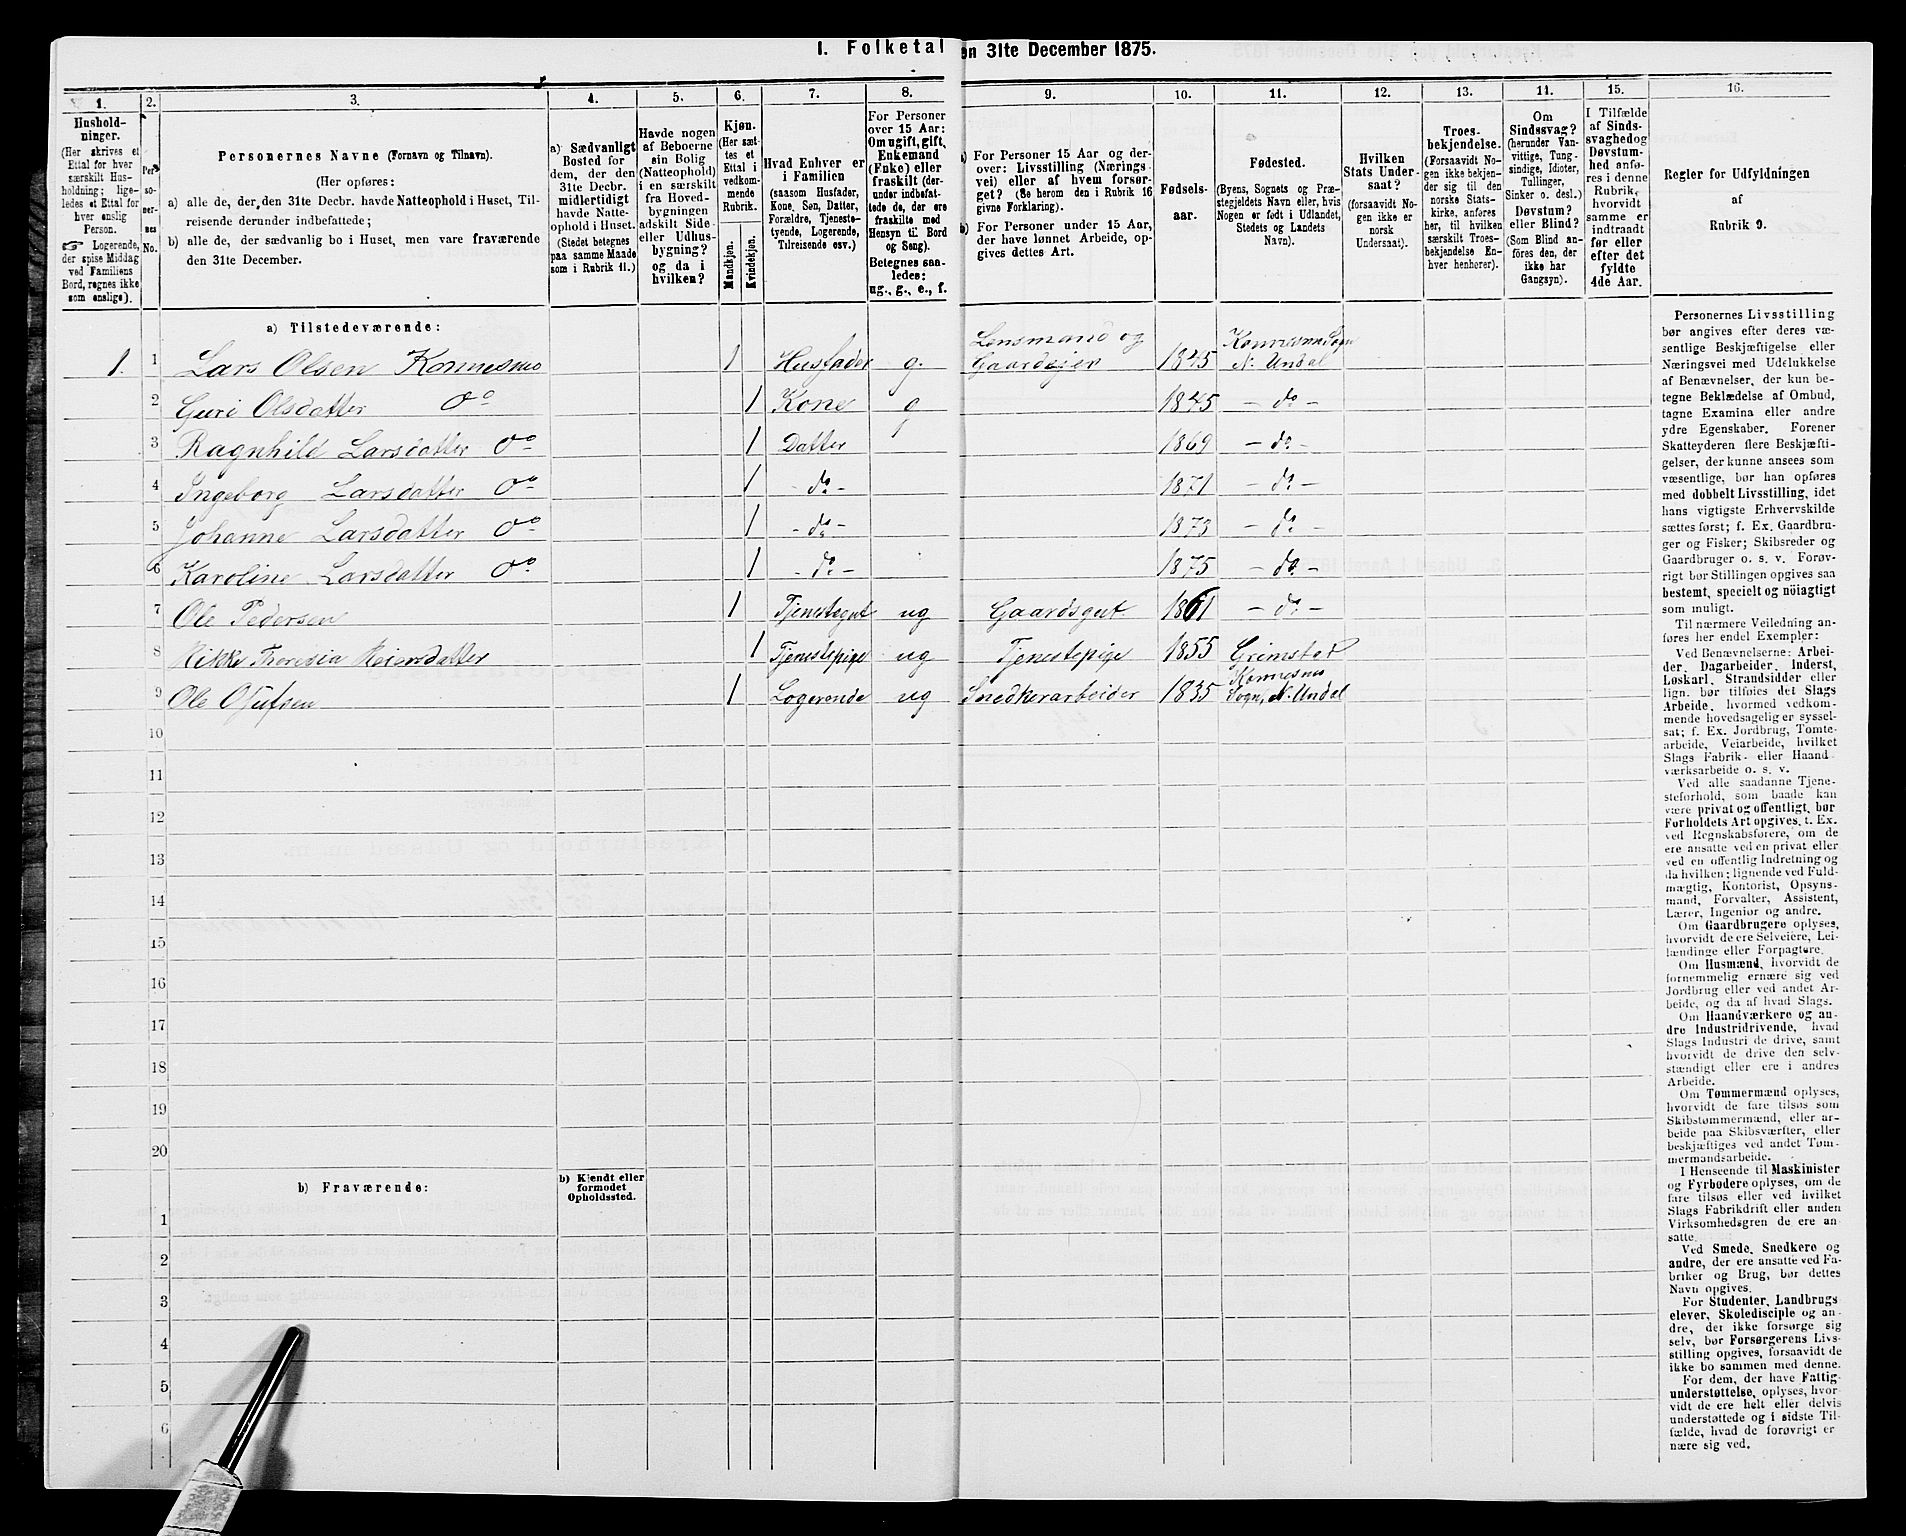 I. Folketal
en 31te December 1875.
1.
Hushold-
ninger.
(Her skrives et
Ettal for hver
særskilt Hus-
holdning; lige-
ledes et Ettal for
hver enslig
Person.
☞ Logerende,
der spise Middag
ved Familiens
Bord, regnes ikke
som enslige).
2.
Per-
so-
ner-
nes
No.
3.
Personernes Navne (Fornavn og Tilnavn).
(Her opføres:
a) alle de, der den 31te Decbr. havde Natteophold i Huset, Til-
reisende derunder indbefattede;
b) alle de, der sædvanlig bo i Huset, men vare fraværende
den 31te December.
4.
a) Sædvanligt
Bosted for
dem, der den
31te Decbr.
midlertidigt
havde Natte-
ophold i Huset.
(Stedet betegnes
paa samme Maade
som i Rubrik 11.)
5.
Havde nogen
af Beboerne
sin Bolig
(Natteophold)
i en særskilt
fra Hoved-
bygningen
adskilt Side-
eller Udhus-
bygning?
og da i
hvilken?
6.
Kjøn.
(Her sæt-
tes et
Ettal i
vedkom-
mende
Rubrik.
Mandkjøn.
Kvindekjøn.
7.
Hvad Enhver er
i Familien
(saasom Husfader,
Kone, Søn, Datter,
Forældre, Tjeneste-
tyende, Logerende,
Tilreisende osv.)
8.
For Personer
over 15 Aar:
Om ugift, gift,
Enkemand
(Enke) eller
fraskilt (der-
under indbefat-
tede de, der ere
fraskilte med
Hensyn til Bord
og Seng).
Betegnes saa-
ledes:
ug., g., e., f.
9.
a) For Personer 15 Aar og der-
over: Livsstilling (Nærings-
vei) eller af hvem forsør-
get? (Se herom den i Rubrik 16
givne Forklaring).
b) For Personer under 15 Aar,
der have lønnet Arbeide, op-
gives dettes Art.
10.
Fødsels-
aar.
11.
Fødested.
(Byens, Sognets og Præ-
stegjeldets Navn eller, hvis
Nogen er født i Udlandet,
Stedets og Landets
Navn).
12.
Hvilken
Stats Under-
saat?
(forsaavidt No-
gen ikke er
norsk
Undersaat).
13.
Troes-
bekjendelse.
(Forsaavidt No-
gen ikke bekjen-
der sig til den
norske Stats-
kirke, anføres
her, til hvilken
særskilt Troes-
bekjendelse En-
hver henhører).
14.
Om
Sindssvag?
(herunder Van-
vittige, Tung-
sindige, Idioter,
Tullinger,
Sinker o. desl.)
Døvstum?
eller Blind?
(Som Blind an-
føres den, der
ikke har
Gangsyn).
15.
I Tilfælde
af Sinds-
svaghed og
Døvstum-
hed anfø-
res i denne
Rubrik,
hvorvidt
samme er
indtraadt
før eller
efter det
fyldte
4de Aar.
16.
Regler for Udfyldningen
af
Rubrik 9.
a) Tilstedeværende:
1. 1 Lars Olsen Konnesmo 1 Husfader g. Lensmand og Gaardeier 1845 Konnesmo Sogn N: Undal
2 Guri Olsdatter Do 1 Kone g 1845 – do –
3 Ragnhild Larsdatter Do 1 Datter 1869 – do –
4 Ingeborg Larsdatter Do 1 – do – 1871 – do –
5 Johanne Larsdatter Do 1 – do – 1873 – do –
6 Karoline Larsdatter Do 1 – do – 1875 – do –
7 Ole Pedersen 1 Tjenestegut ug Gaardsgut 1861 – do –
8 Theresia 1 Tjenestepige ug Tjenestepige 1855 Grimstad
9 Ole 1 Logerende ug Snedkerarbeider 1835 Konnesmo Sogn, N: Undal
10
11
12
13
14
15
16
17
18
19
20
b) Fraværende:
b) Kjendt eller
formodet
Opholdssted.
1
2
3
4
5
6
Personernes Livsstilling
bør angives efter deres væ-
sentlige Beskjæftigelse eller
Næringsvei med Udelukkelse
af Benævnelser, der kun be-
tegne Beklædelse af Ombud,
tagne Examina eller andre
ydre Egenskaber. Forener
Skatteyderen flere Beskjæfti-
gelser, der kunne ansees som
væsentlige, bør han opføres
med dobbelt Livsstilling, idet
hans vigtigste Erhvervskilde
sættes først; f. Ex. Gaardbru-
ger og Fisker; Skibsreder og
Gaardbruger o. s. v. Forøv-
rigt bør Stillingen opgives saa
bestemt, specielt og nøiagtigt
som muligt.
Til nærmere Veiledning an-
føres her endel Exempler:
Ved Benævnelserne: Arbei-
der, Dagarbeider, Inderst,
Løskarl, Strandsidder eller
lign. bør tilføies det Slags
Arbeide, hvormed vedkom-
mende hovedsagelig er syssel-
sat; f. Ex. Jordbrug, Tomte-
arbeide, Veiarbeide, hvilket
Slags Fabrik- eller Haand-
værksarbeide o. s. v.
Ved alle saadanne Tjene-
steforhold, som baade kan
være privat og offentligt, bør
Forholdets Art opgives, t. Ex.
ved Regnskabsførere, om de
ere ansatte ved en privat eller
ved en offentlig Indretning og
da hvilken; lignende ved Fuld-
mægtig, Kontorist, Opsyns-
mand, Forvalter, Assistent,
Lærer, Ingeniør og andre.
Om Gaardbrugere oplyses,
hvorvidt de ere Selveiere, Lei-
lændinge eller Forpagtere.
Om Husmænd, hvorvidt de
fornemmelig ernære sig ved
Jordbrug eller ved andet Ar-
beide, og da af hvad Slags.
Om Haandværkere og an-
dre Industridrivende, hvad
Slags Industri de drive, samt
hvorvidt de drive den selv-
stændigt eller ere i andres
Arbeide.
Om Tømmermænd oplyses,
hvorvidt de fare tilsøs som
Skibstømmermænd, eller ar-
beide paa Skibsværfter, eller
beskjæftiges ved andet Tøm-
mermandsarbeide.
I Henseende til Maskinister
og Fyrbødere oplyses, om de
fare tilsøs eller ved hvilket
Slags Fabrikdrift eller anden
Virksomhedsgren de ere an-
satte.
Ved Smede, Snedkere og
andre, der ere ansatte ved Fa-
briker og Brug, bør dettes
Navn opgives.
For Studenter, Landbrugs-
elever, Skoledisciple og an-
dre, der ikke forsørge sig
selv, bør Forsørgerens Livs-
stilling opgives, forsaavidt de
ikke bo sammen med denne.
For dem, der have Fattig-
understøttelse, oplyses, hvor-
vidt de ere helt eller delvis
understøttede og i sidste Til-
fælde, hvad de forøvrigt er-
nære sig ved.